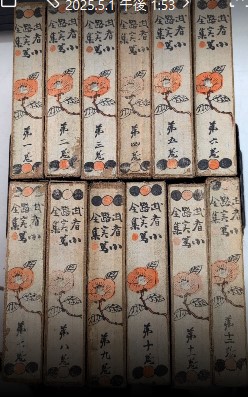 2025.5.1 午後 1:53
武者小路実篤全集
第一巻
武者小路実篤全集
第二巻
武者小路実篤全集
第三巻
武者小路実篤全集
第四巻
武者小路実篤全集
第五巻
武者小路実篤全集
第六巻
武者小路実篤全集
武者小路実篤全集
第八巻
武者小路実篤全集
第九巻
武者小路実篤全集
第十巻
武者小路実篤全集
第十一巻
武者小路実篤全集
第十二巻